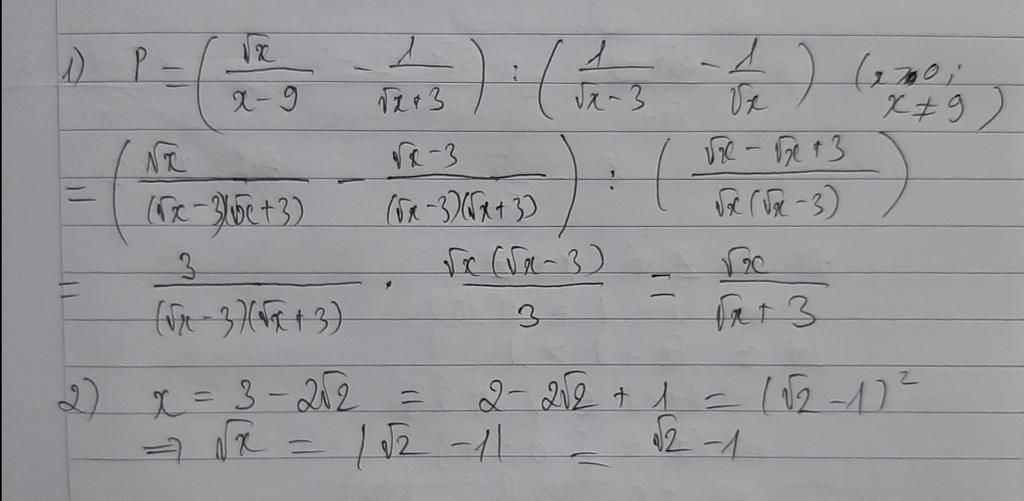 1) P = (√x / (x - 9) - 1 / (√x + 3)) : (1 / (√x - 3) - 1 / √x) (x > 0; x ≠ 9)
= (√x / ((√x - 3)(√x + 3)) - (√x - 3) / ((√x - 3)(√x + 3))) : ((√x - √x + 3) / (√x(√x - 3)))
= 3 / ((√x - 3)(√x + 3)) . √x(√x - 3) / 3 = √x / (√x + 3)
2) x = 3 - 2√2 = 2 - 2√2 + 1 = (√2 - 1)²
⇒ √x = |√2 - 1| = √2 - 1